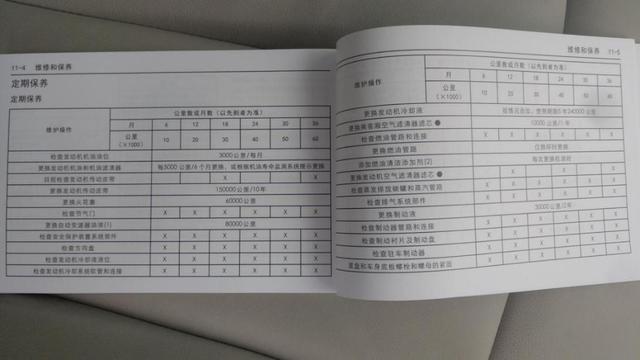 11-4 维修和保养
定期保养
定期保养
维护操作
公里数或月数（以先到者为准）
月 6 12 18 24 30 36
公里（×1000） 10 20 30 40 50 60
检查发动机机油液位 3000公里/每月
更换发动机机油和机油滤清器 每5000公里/6个月更换，或根据机油寿命监测系统提示更换
目视检查发动机传动皮带 X X
更换发动机传动皮带 150000公里/10年
更换火花塞 60000公里
检查节气门 X X X X X X
更换自动变速器油液(1) 80000公里
检查安全保护装置系统部件 X X X X X X
检查方向盘 X X X X X X
检查发动机冷却液液位 X X X X X X
检查发动机冷却系统软管和连接 X X X X X X
维修和保养 11-5
维护操作
公里数或月数（以先到者为准）
月 6 12 18 24 30 36
公里（×1000） 10 20 30 40 50 60
更换发动机冷却液 240000公里
更换乘客厢空气滤清器滤芯● 10000公里/1年
检查燃油管路和连接 X X X X X X
更换燃油管路
添加燃油清洁添加剂(2) 每次更换机油时
更换发动机空气滤清器滤芯● X X X
检查蒸发排放碳罐和蒸汽管路 X X X
检查排气系统部件 X X X X X X
更换制动液 30000公里/2年
检查制动器管路和连接 X X X X X X
检查制动衬片及制动盘 X X X X X X
检查驻车制动器 X X X X X X
底盘和车身底板螺栓和螺母的紧固 X X X X X X